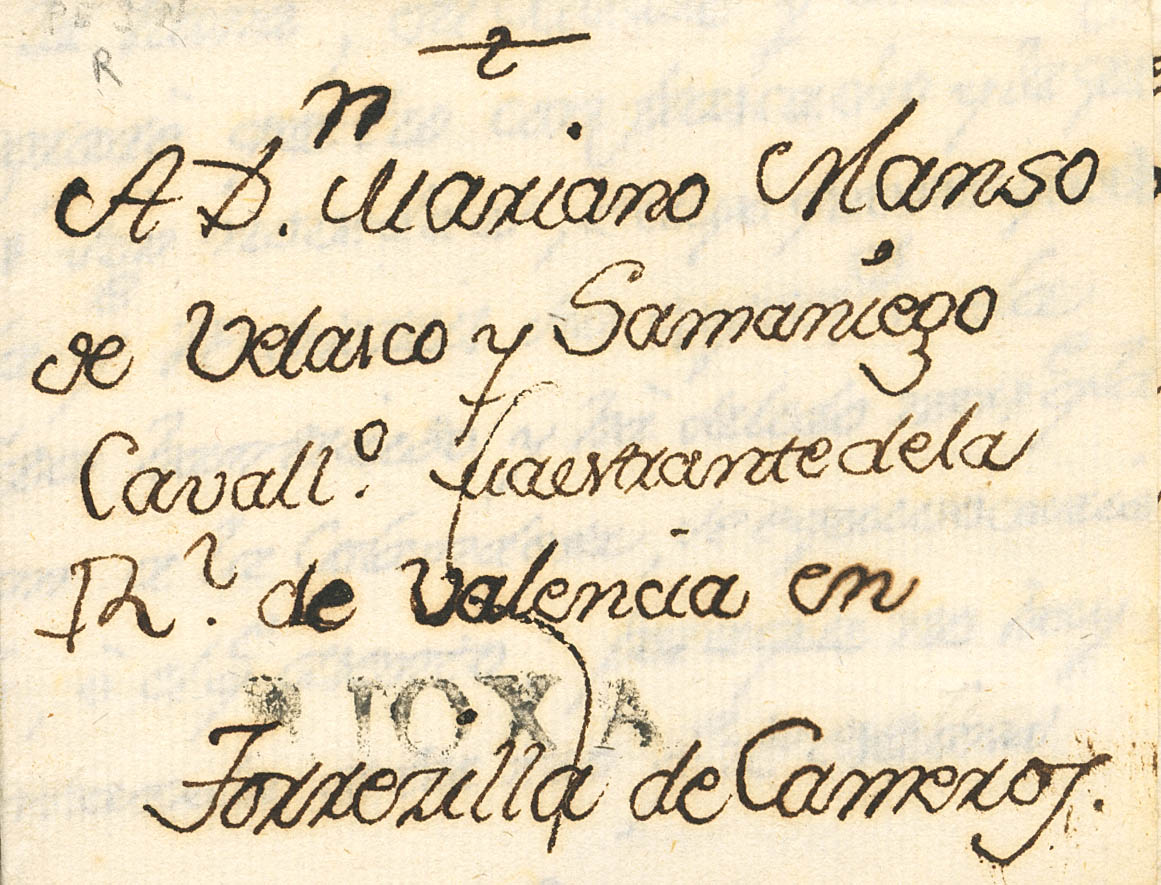 R
A D.n Mariano Manso
de Velasco y Samaniego
Cavall.o Maestrante de la
R.l de Valencia en
RIOXA
Torrezilla de Cameros.